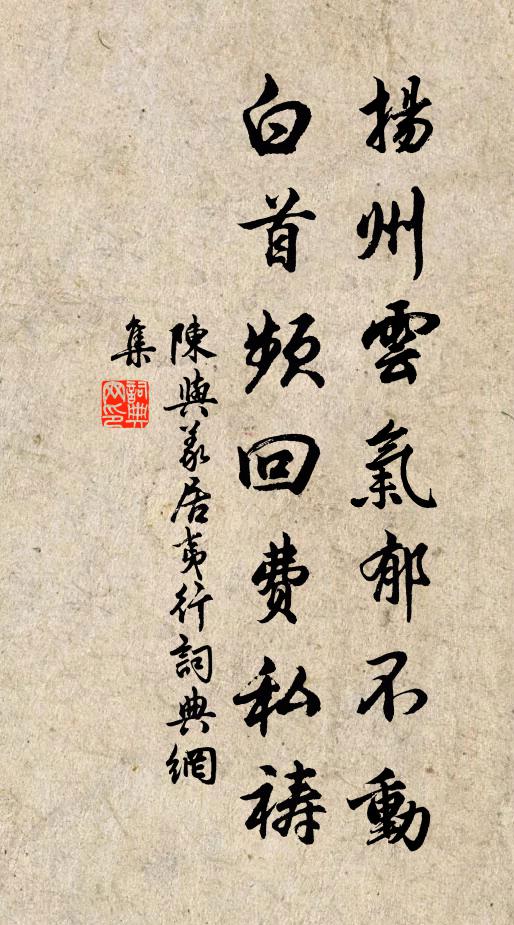 揚州雲氣郁不動
白首頻回費私禱
陳與義居夷行詞典網
集
詞典
网印